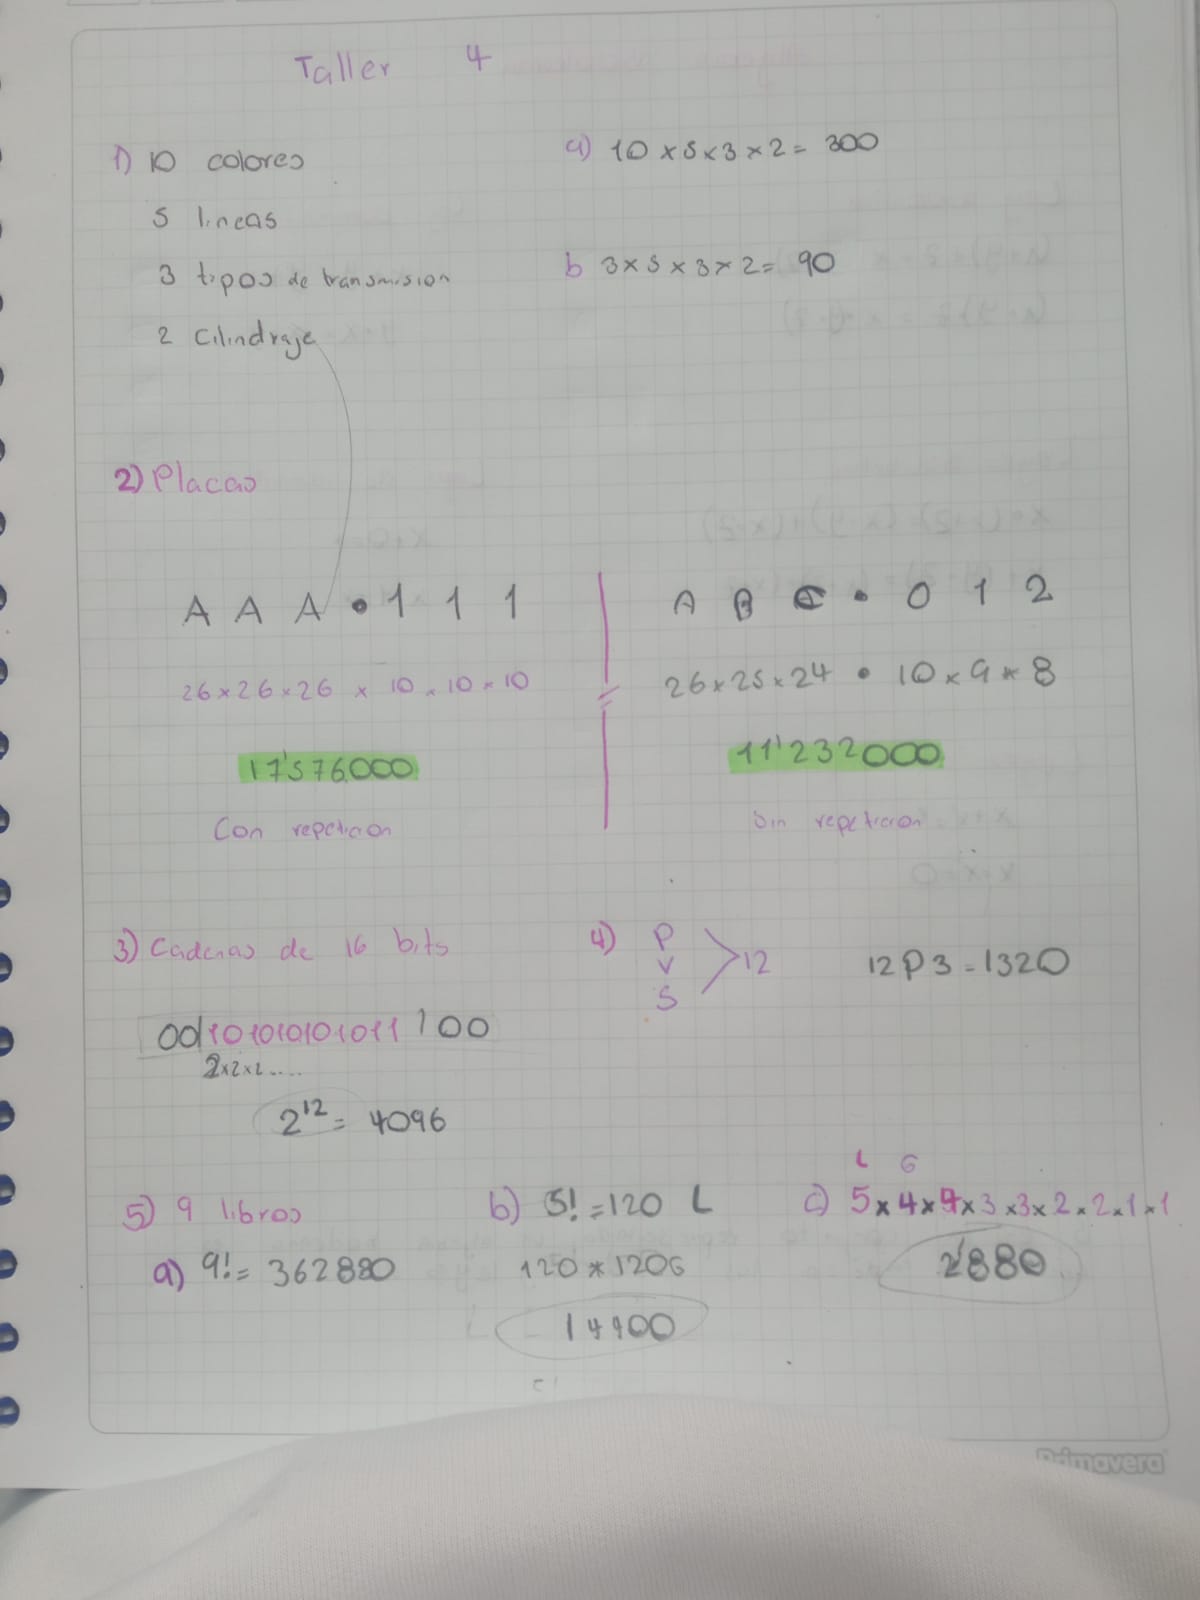 Taller 4
1) 10 colores
5 lineas
3 tipos de transmision
2 Cilindraje
a) 10 x 5 x 3 x 2 = 300
b 3 x 5 x 3 x 2 = 90
2) Placas
A A A • 1 1 1
26 x 26 x 26 x 10 x 10 x 10
17'576.000
Con repeticion
A B C • 0 1 2
26 x 25 x 24 • 10 x 9 x 8
11'232000
Sin repeticion
3) Cadenas de 16 bits
2x2x2....
2^12 = 4096
4) P
V
S
12
12 P 3 = 1320
5) 9 libros
a) 9! = 362880
b) 5! = 120 L
120 x 120G
14400
L G
c) 5 x 4 x 4 x 3 x 3 x 2 x 2 x 1 x 1
2'880
Primavera